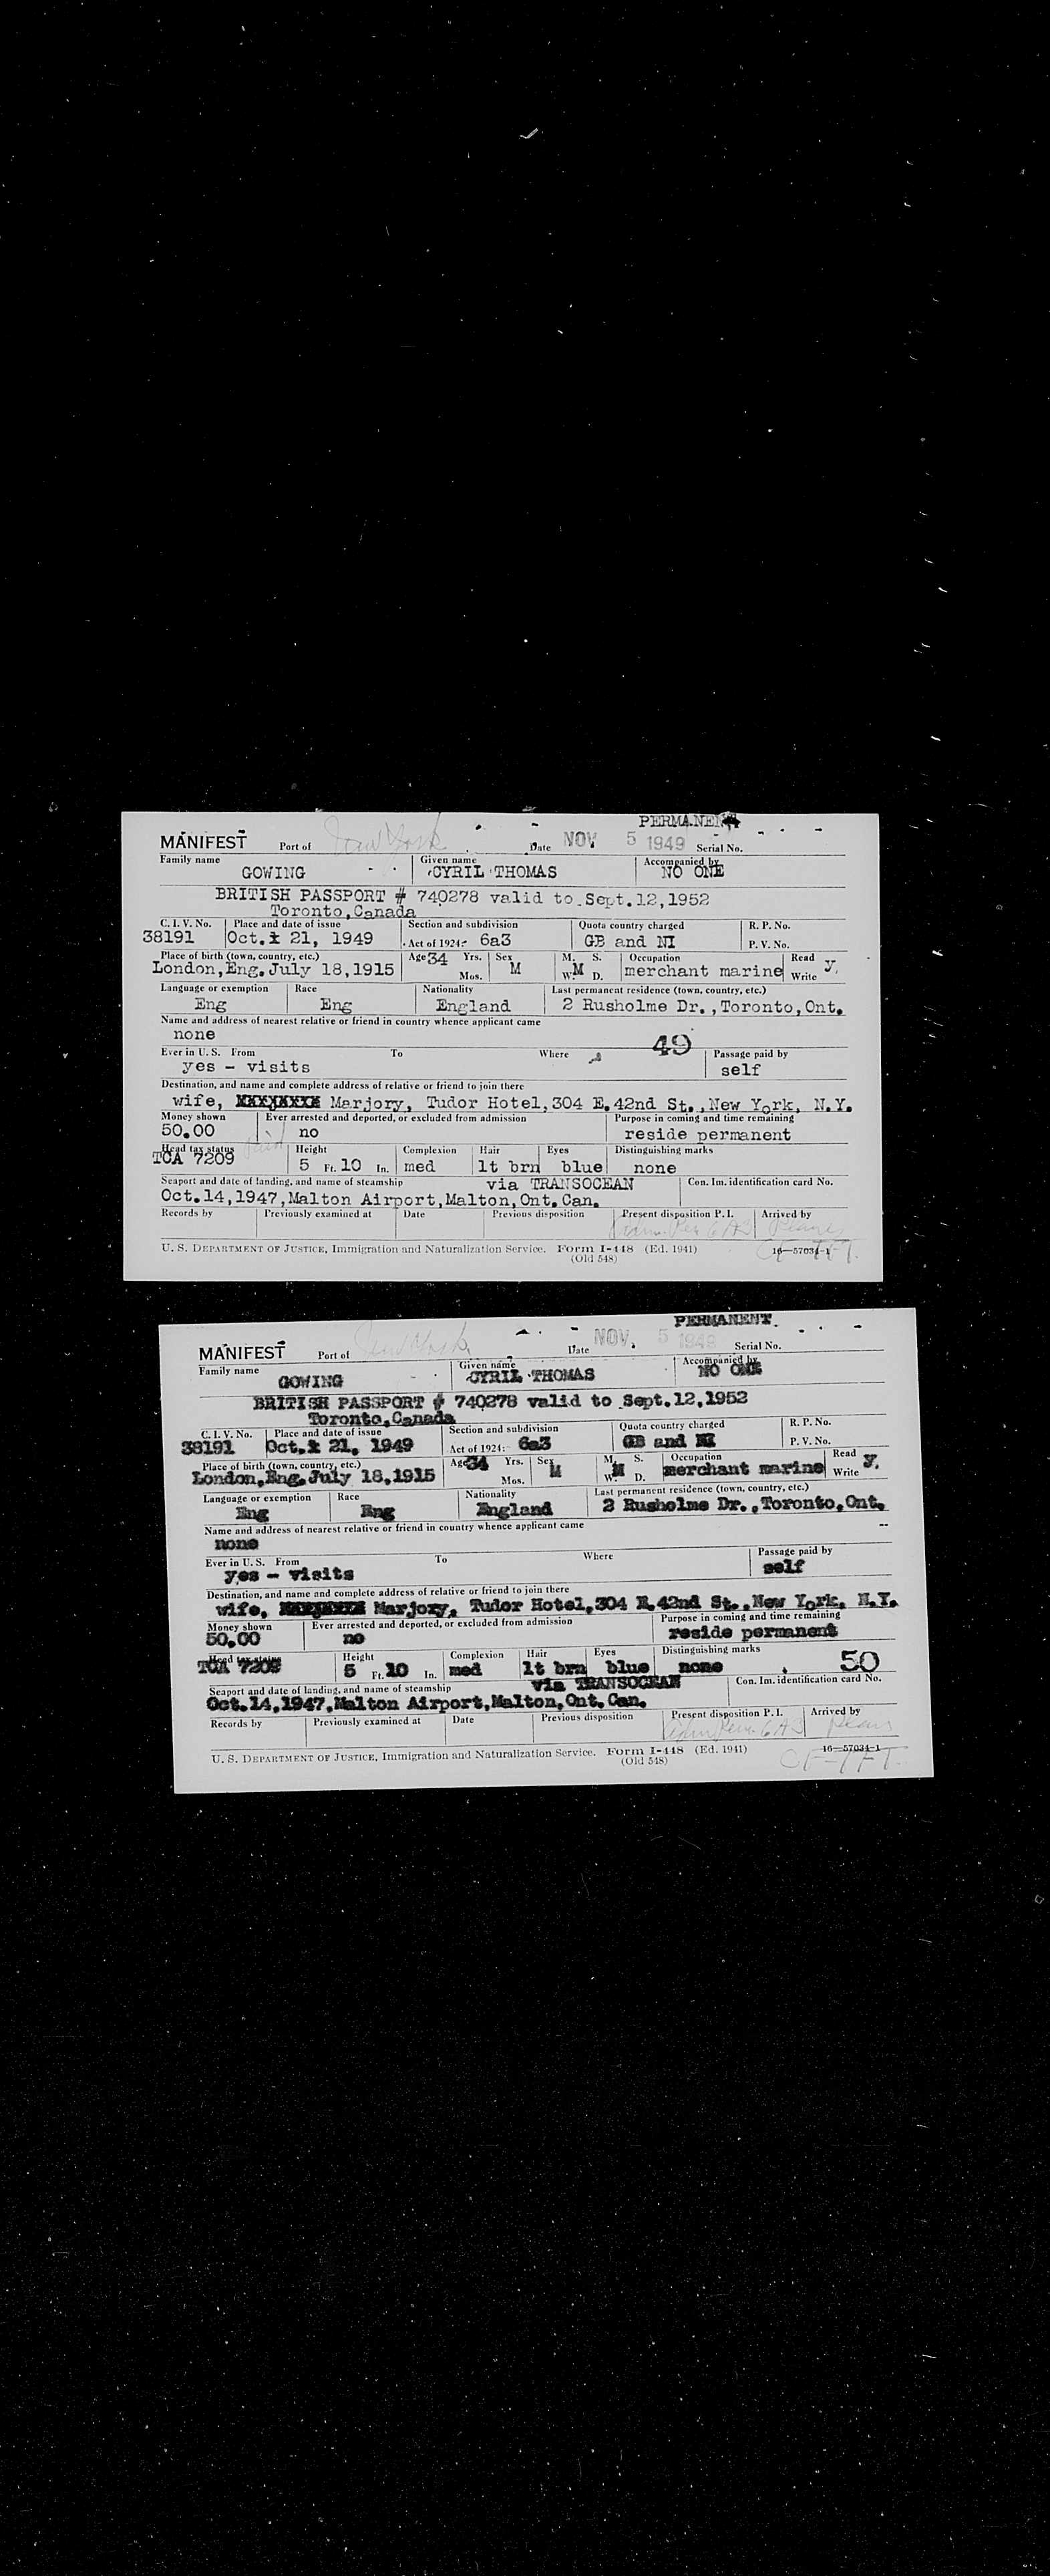 PERMANENT
MANIFEST Port of New York Date NOV 5 1949 Serial No.
Family name Given name Accompanied by
GOWING CYRIL THOMAS NO ONE
BRITISH PASSPORT # 740278 valid to Sept.12,1952
Toronto,Canada
C. I. V. No. Place and date of issue Section and subdivision Quota country charged R. P. No.
38191 Oct. 21, 1949 Act of 1924: 6a3 GB and NI P. V. No.
Place of birth (town, country, etc.) Age 34 Yrs. Sex M. S. Occupation Read y.
London,Eng.July 18,1915 Mos. M W. M D. merchant marine Write
Language or exemption Race Nationality Last permanent residence (town, country, etc.)
Eng Eng England 2 Rusholme Dr.,Toronto,Ont.
Name and address of nearest relative or friend in country whence applicant came
none 49
Ever in U. S. From To Where Passage paid by
yes - visits self
Destination, and name and complete address of relative or friend to join there
wife, Marjory, Tudor Hotel,304 E.42nd St.,New York, N.Y.
Money shown Ever arrested and deported, or excluded from admission Purpose in coming and time remaining
50.00 no reside permanent
Head tax status Height Complexion Hair Eyes Distinguishing marks
TCA 7209 5 Ft. 10 In. med lt brn blue none
Seaport and date of landing, and name of steamship via TRANSOCEAN Con. Im. identification card No.
Oct.14,1947,Malton Airport,Malton,Ont.Can.
Records by Previously examined at Date Previous disposition Present disposition P. I. Arrived by
U. S. DEPARTMENT OF JUSTICE, Immigration and Naturalization Service. Form I-448 (Ed. 1941) 16—57034-1
(Old 548)
PERMANENT.
MANIFEST Port of New York Date NOV. 5 1949 Serial No.
Family name Given name Accompanied by
GOWING CYRIL THOMAS NO ONE
BRITISH PASSPORT # 740278 valid to Sept.12,1952
Toronto,Canada
C. I. V. No. Place and date of issue Section and subdivision Quota country charged R. P. No.
38191 Oct. 21, 1949 Act of 1924: 6a3 GB and NI P. V. No.
Place of birth (town, country, etc.) Age 34 Yrs. Sex M. S. Occupation Read y.
London,Eng.July 18,1915 Mos. M W. M D. merchant marine Write
Language or exemption Race Nationality Last permanent residence (town, country, etc.)
Eng Eng England 2 Rusholme Dr.,Toronto,Ont.
Name and address of nearest relative or friend in country whence applicant came
none
Ever in U. S. From To Where Passage paid by
yes - visits self
Destination, and name and complete address of relative or friend to join there
wife, Marjory, Tudor Hotel,304 E.42nd St.,New York, N.Y.
Money shown Ever arrested and deported, or excluded from admission Purpose in coming and time remaining
50.00 no reside permanent
Head tax status Height Complexion Hair Eyes Distinguishing marks
TCA 7209 5 Ft. 10 In. med lt brn blue none 50
Seaport and date of landing, and name of steamship via TRANSOCEAN Con. Im. identification card No.
Oct.14,1947,Malton Airport,Malton,Ont.Can.
Records by Previously examined at Date Previous disposition Present disposition P. I. Arrived by
U. S. DEPARTMENT OF JUSTICE, Immigration and Naturalization Service. Form I-448 (Ed. 1941) 16—57034-1
(Old 548)